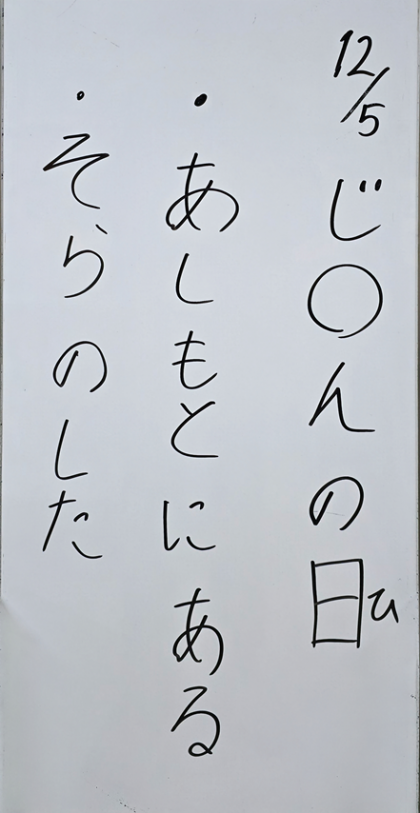 12/5 じ〇んの日
ひ
・あしもとにある
・そらのした